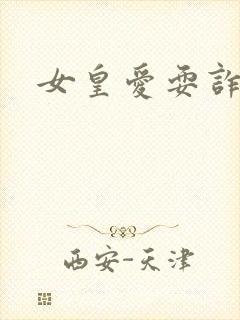 女皇愛耍詐
西安-天津